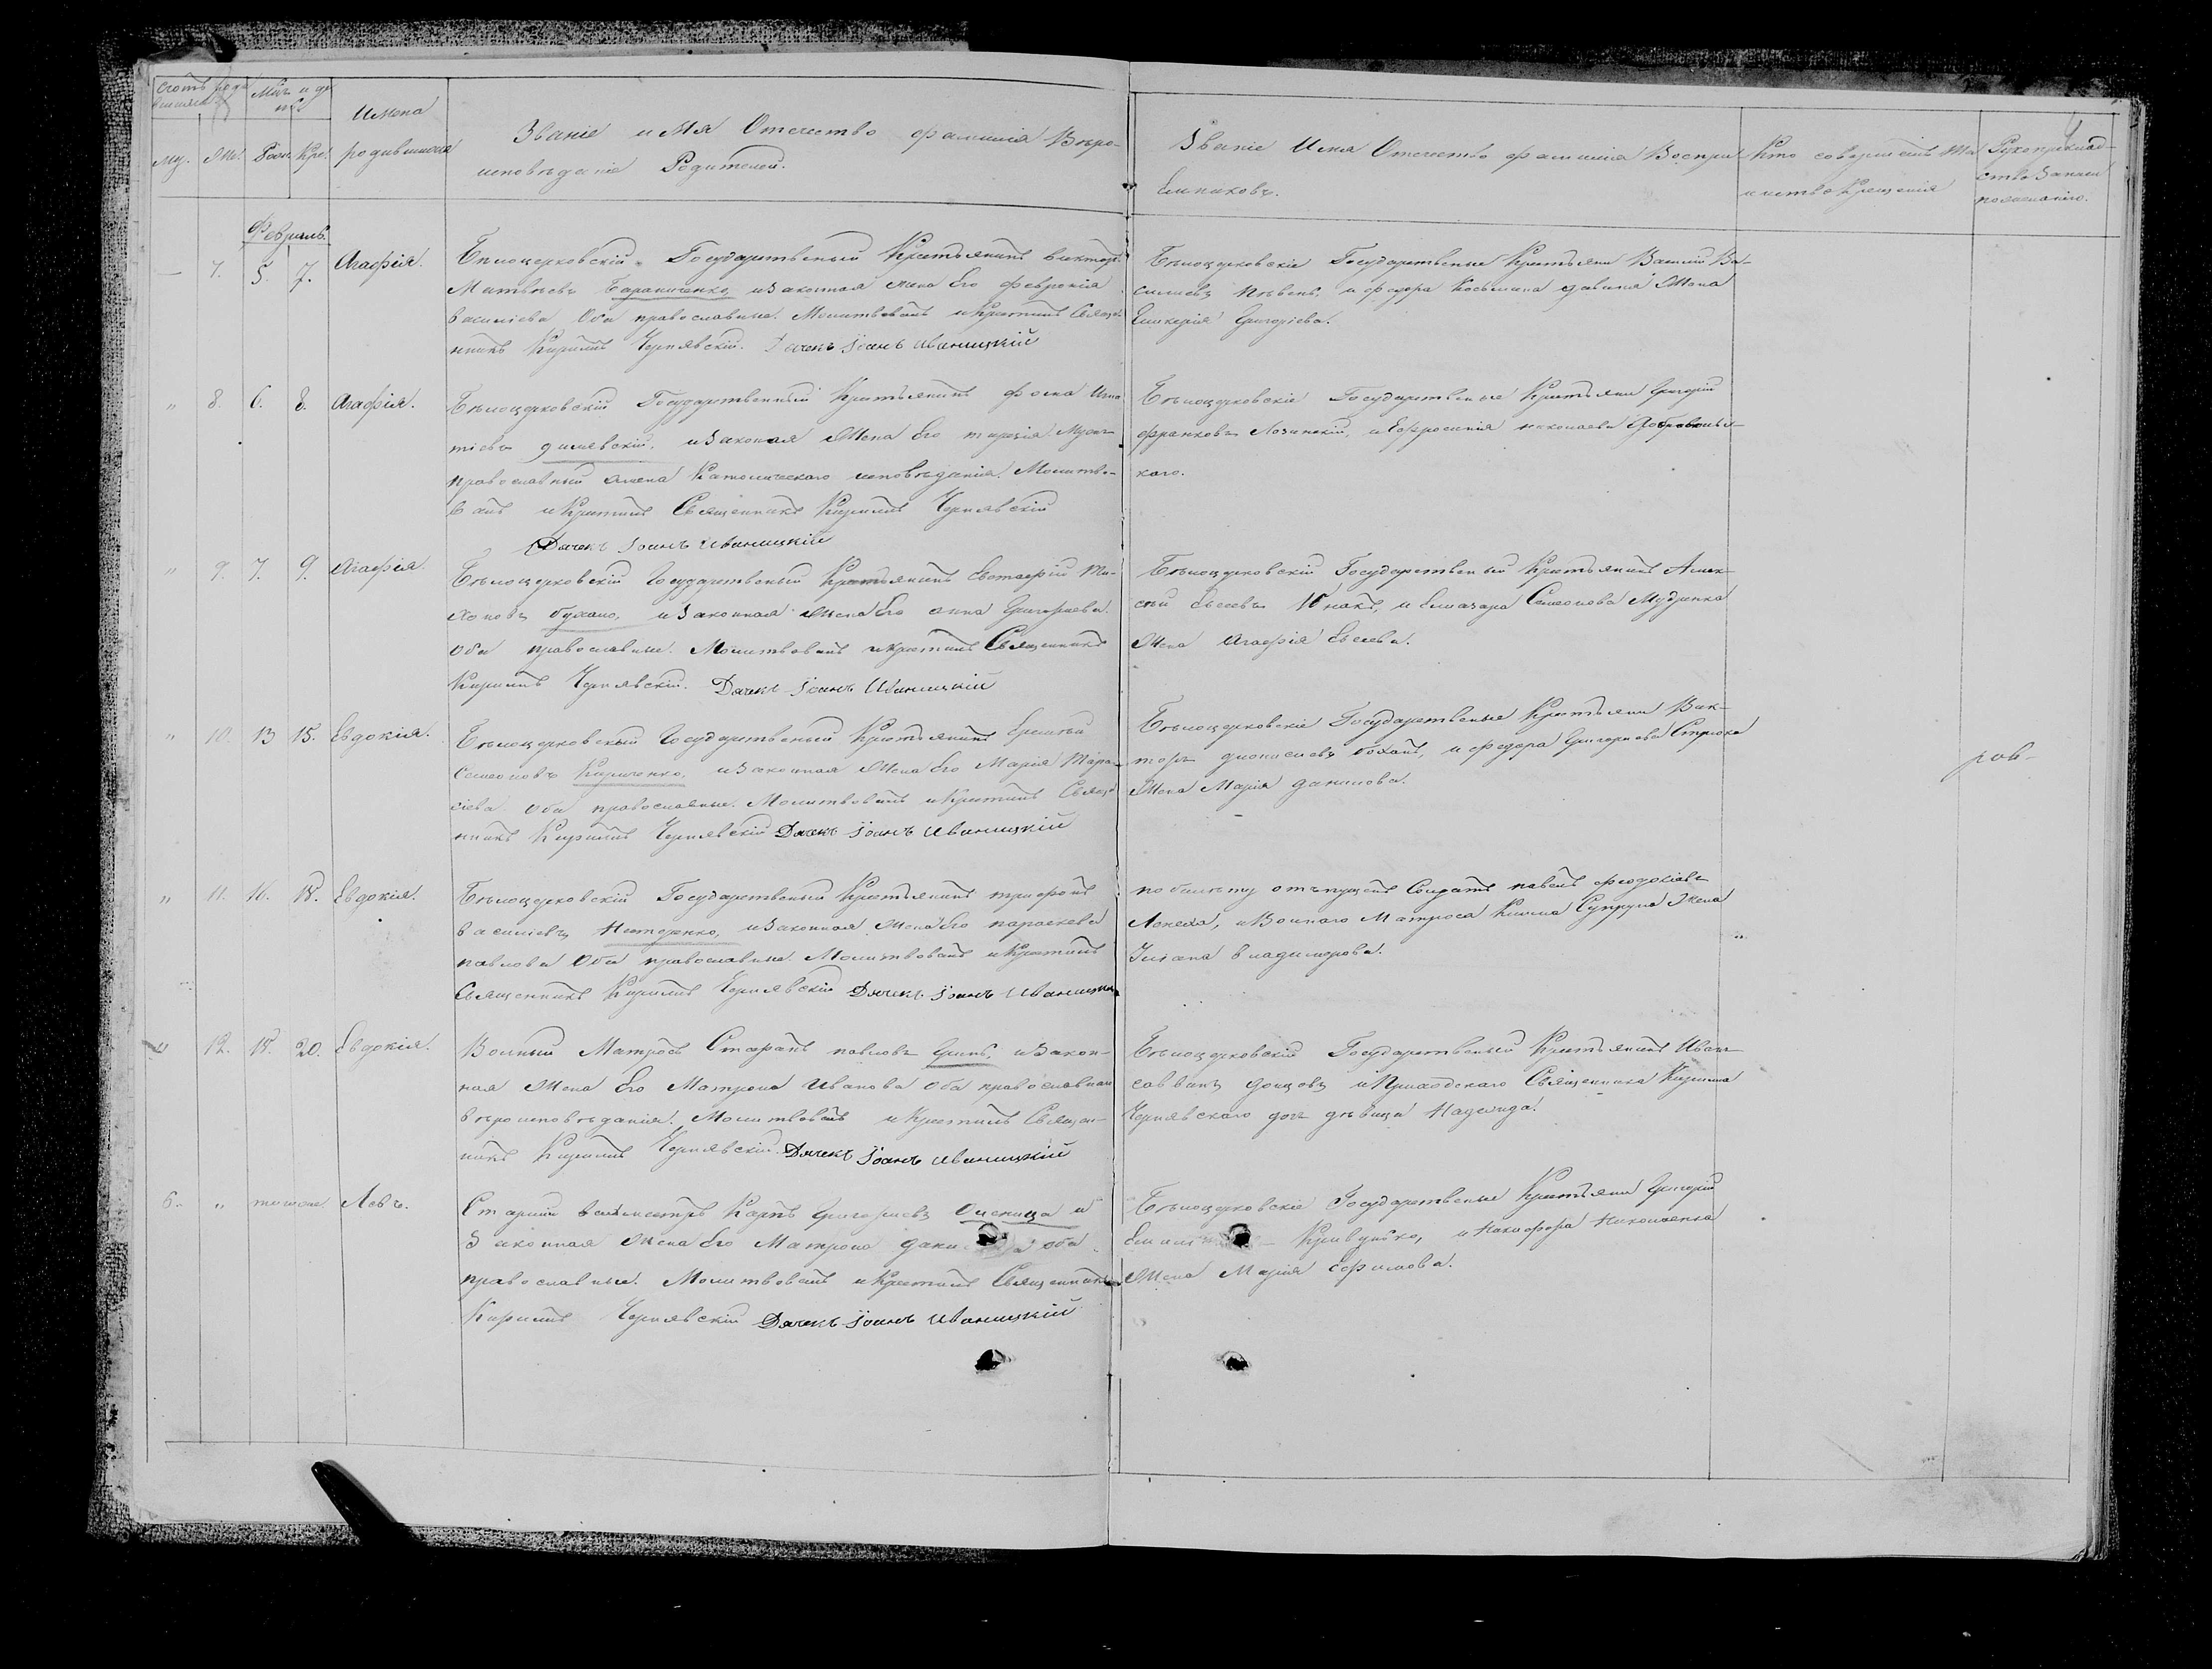 Счотъ роди Мѣс. и дн. Имена Званіе имя Отечество фамилія Вѣро- Званіе Имя Отечество фамилія Воспрі- Кто совершалъ Та Рукоприклад-
вшихся родившихся исповѣданія Родителей. емниковъ. инство Крещенія ство Записи
му. же. Рож. Кре. по желанію.
Февраль.
— 7. 5. 7. Агафія. Бѣлоцерковскій Государственый Крестьянинъ Викторъ
Матвѣевъ Бараниченко, изаконная жена Его феврокія
василіева Оба православные. Молитвовалъ икрестилъ Священ
никъ Кирилъ Чернявскій. Дячекъ Іоанъ Иваницкій
Бѣлоцерковскіе Государственые Крестьяни Василій Ва-
силіевъ Пѣвень, и федора Косьмина жена
Гликерія Григоріева.
" 8. 6. 8. Агафія. Бѣлоцерковскій Государственный Крестьянинъ фома Игна
тіевъ изаконая Жена Его
православный жена Католическаго исповѣданія. Молитво-
валъ икрестилъ Священникъ Кирилъ Чернявскій
Дячекъ Іоанъ Иваницкій
Бѣлоцерковскіе Государственые Крестьяни Григорій
франковъ Лозинскій, иЕфросинія николаева Добровольс-
каго.
" 9. 7. 9. Агафія. Бѣлоцерковскій Государственый Крестьянинъ Евстафій Ти-
хоновъ бухало, изаконная жена Его анна Григориева.
оба православные. Молитвовалъ икрестилъ Священникъ
Кирилъ Чернявскій. Дячекъ Іоанъ Иваницкій
Бѣлоцерковскій Государственый Крестьянинъ Алек-
сѣй Евсеевъ Юнакъ, и Елиазара Симеонова Мудренка
Жена Агафія Евсева.
" 10. 13 15. Евдокія. Бѣлоцерковскый Государственый Крестьянинъ Еремѣй
Симеоновъ Кириченко, изаконная Жена Его Марія Тара-
сіева. Оба православные. Молитвовалъ икрестилъ Свяще
нникъ Кирилъ Чернявскій Дячекъ Іоанъ Иваницкій
Бѣлоцерковскіе Государственые Крестьяни Вик-
торъ дионисиевъ боханъ, и федора Григориева Стрюка
Жена Марія данилова.
ров-
" 11. 16. 18. Евдокія. Бѣлоцерковскій Государственый Крестьянинъ трифонъ
василіевъ Нестеренко, изаконная Жена Его параскева
павлова Оба православные. Молитвовалъ икрестилъ
Священникъ Кирилъ Чернявскій Дячекъ Іоанъ Иваницкій
по билѣту отъпущенъ Солдатъ павелъ феодосіевъ
Лопеха, иВольнаго Матроса Супруна Жена
Уліана владимирова.
" 12. 18. 20. Евдокія. Волный Матросъ павловъ изакон-
ная Жена Его Матрона Иванова Оба православнаго
вѣроисповѣданія. Молитвовалъ икрестилъ Священ-
никъ Кирилъ Чернявскій. Дячекъ Іоанъ Иваницкій
Бѣлоцерковскій Государственый Крестьянинъ Иванъ
саввинъ донцовъ иПриходскаго Священника Кирила
Чернявскаго дочь дѣвица Надежда.
6. " Левъ. Старшій Карпъ Григориевъ и
Законная Жена Его Матрона оба
православные. Молитвовалъ икрестилъ Священникъ
Кирилъ Чернявскій Дячекъ Іоанъ Иваницкій
Бѣлоцерковскіе Государственые Крестьяни Григорій
и Никифора Николаенка
Жена Марія Ефимова.